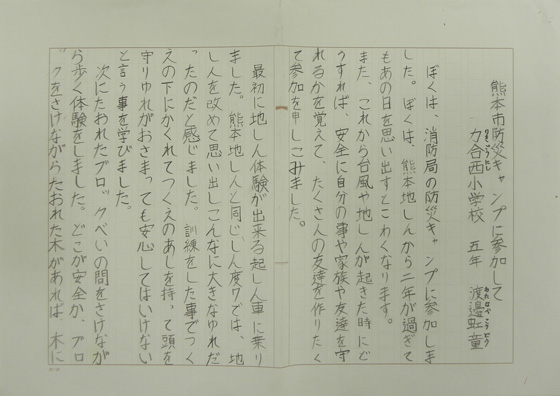 熊本市防災キャンプに参加して
力合西小学校 五年 渡邊虹童
ぼくは、消防局の防災キャンプに参加しま
した。ぼくは、熊本地しんから二年が過ぎて
もあの日を思い出すとこわくなります。
また、これから台風や地しんが起きた時にど
うすれば、安全に自分の事や家族や友達を守
れるかを覚えて、たくさんの友達を作りたく
て参加を申しこみました。
最初に地しん体験が出来る起しん車に乗り
ました。熊本地しんと同じしん度7では、地
しんを改めて思い出しこんなに大きなゆれだ
ったのだと感じました。訓練をした事でつく
えの下にかくれてつくえのあしを持って頭を
守りゆれがおさまっても安心してはいけない
と言う事を学びました。
次にたおれたブロックべいの間をさけなが
ら歩く体験をしました。どこが安全か、ブロ
ックをさけながらたおれた木があれば、木に